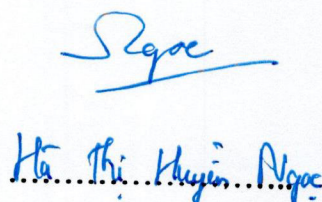 Ngọc
Hà Thị Huyền Ngọc